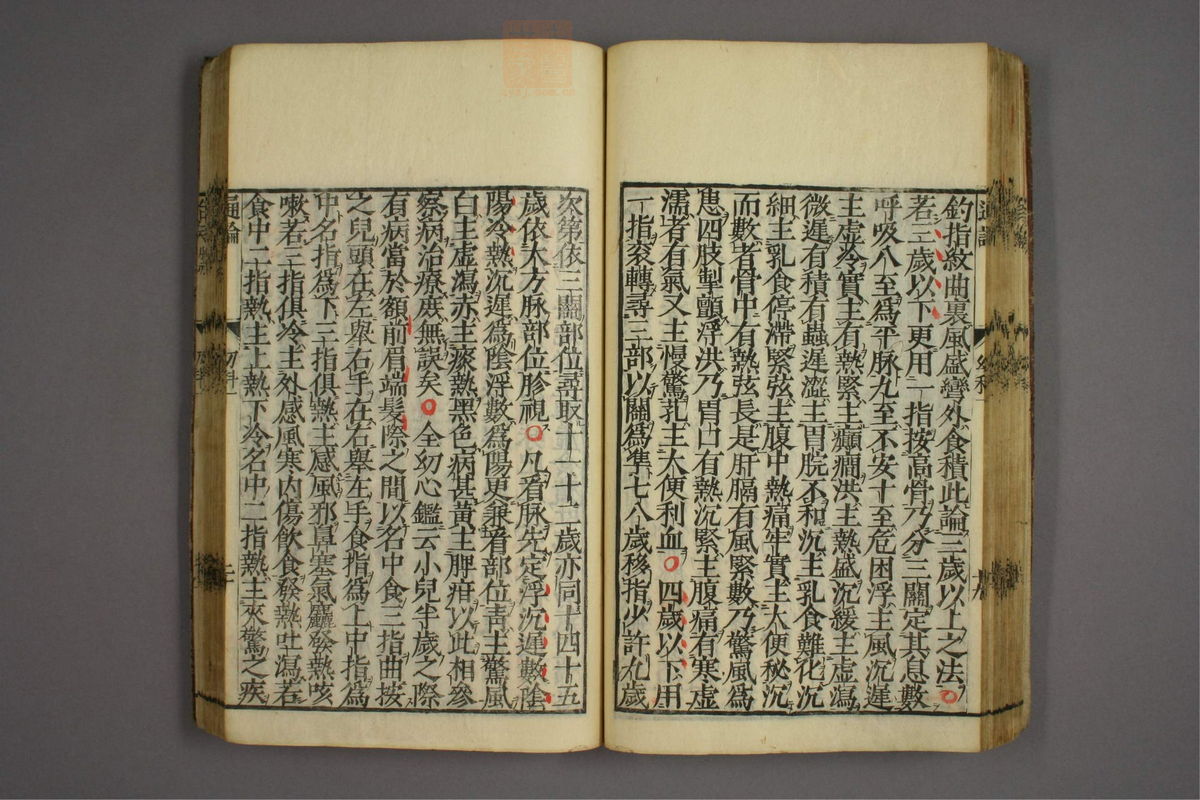 鈎指紋曲裏風盛彎外食積此論三歳以上之法
若三歳以下更用一指按高骨乃分三關定其息數
呼吸八至爲平脉九至不安十至危困浮主風沉遲
主虚冷實主有熱緊主癲癇洪主熱盛沉緩主虚瀉
微遲有積有蟲遲澁主胃脘不和沉主乳食難化沉
細主乳食停滯緊弦主腹中熱痛牢實主大便秘沉
而數者骨中有熱弦長是肝膈有風緊數乃驚風爲
患四肢掣顫浮洪乃胃口有熱沉緊主腹痛有寒虚
濡者有氣又主慢驚芤主大便利血〇四歳以下用
一指衮轉尋三部以關爲準七八歳移指少許九歳
次第依三關部位尋取十一十二歳亦同十四十五
歳依大方脉部位胗視〇凡看脉先定浮沉遲數陰
陽冷熱沉遲爲陰浮數爲陽更兼看部位青主驚風
白主虚瀉赤主痰熱黑色病甚黄主脾疳以此相參
察病治療庶無誤矣〇全幼心鑑云小兒半歳之際
有病當於額前眉端髮際之間以名中食三指曲按
之兒頭在左舉右手在右舉左手食指爲上中指爲
中名指爲下三指俱熱主感風邪鼻塞氣麤發熱咳
嗽若三指俱冷主外感風寒内傷飲食發熱吐瀉若
食中二指熱主上熱下冷名中二指熱主夾驚之疾
通論
二